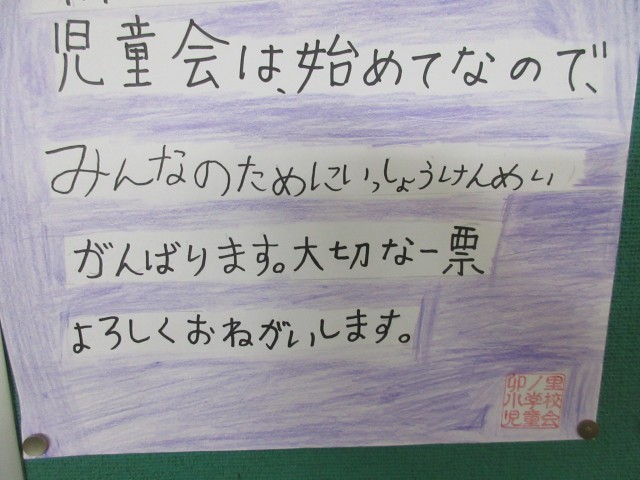 児童会は、始めてなので、
みんなのためにいっしょうけんめい
がんばります。大切な一票
よろしくおねがいします。
卯ノ里
小学校
児童会